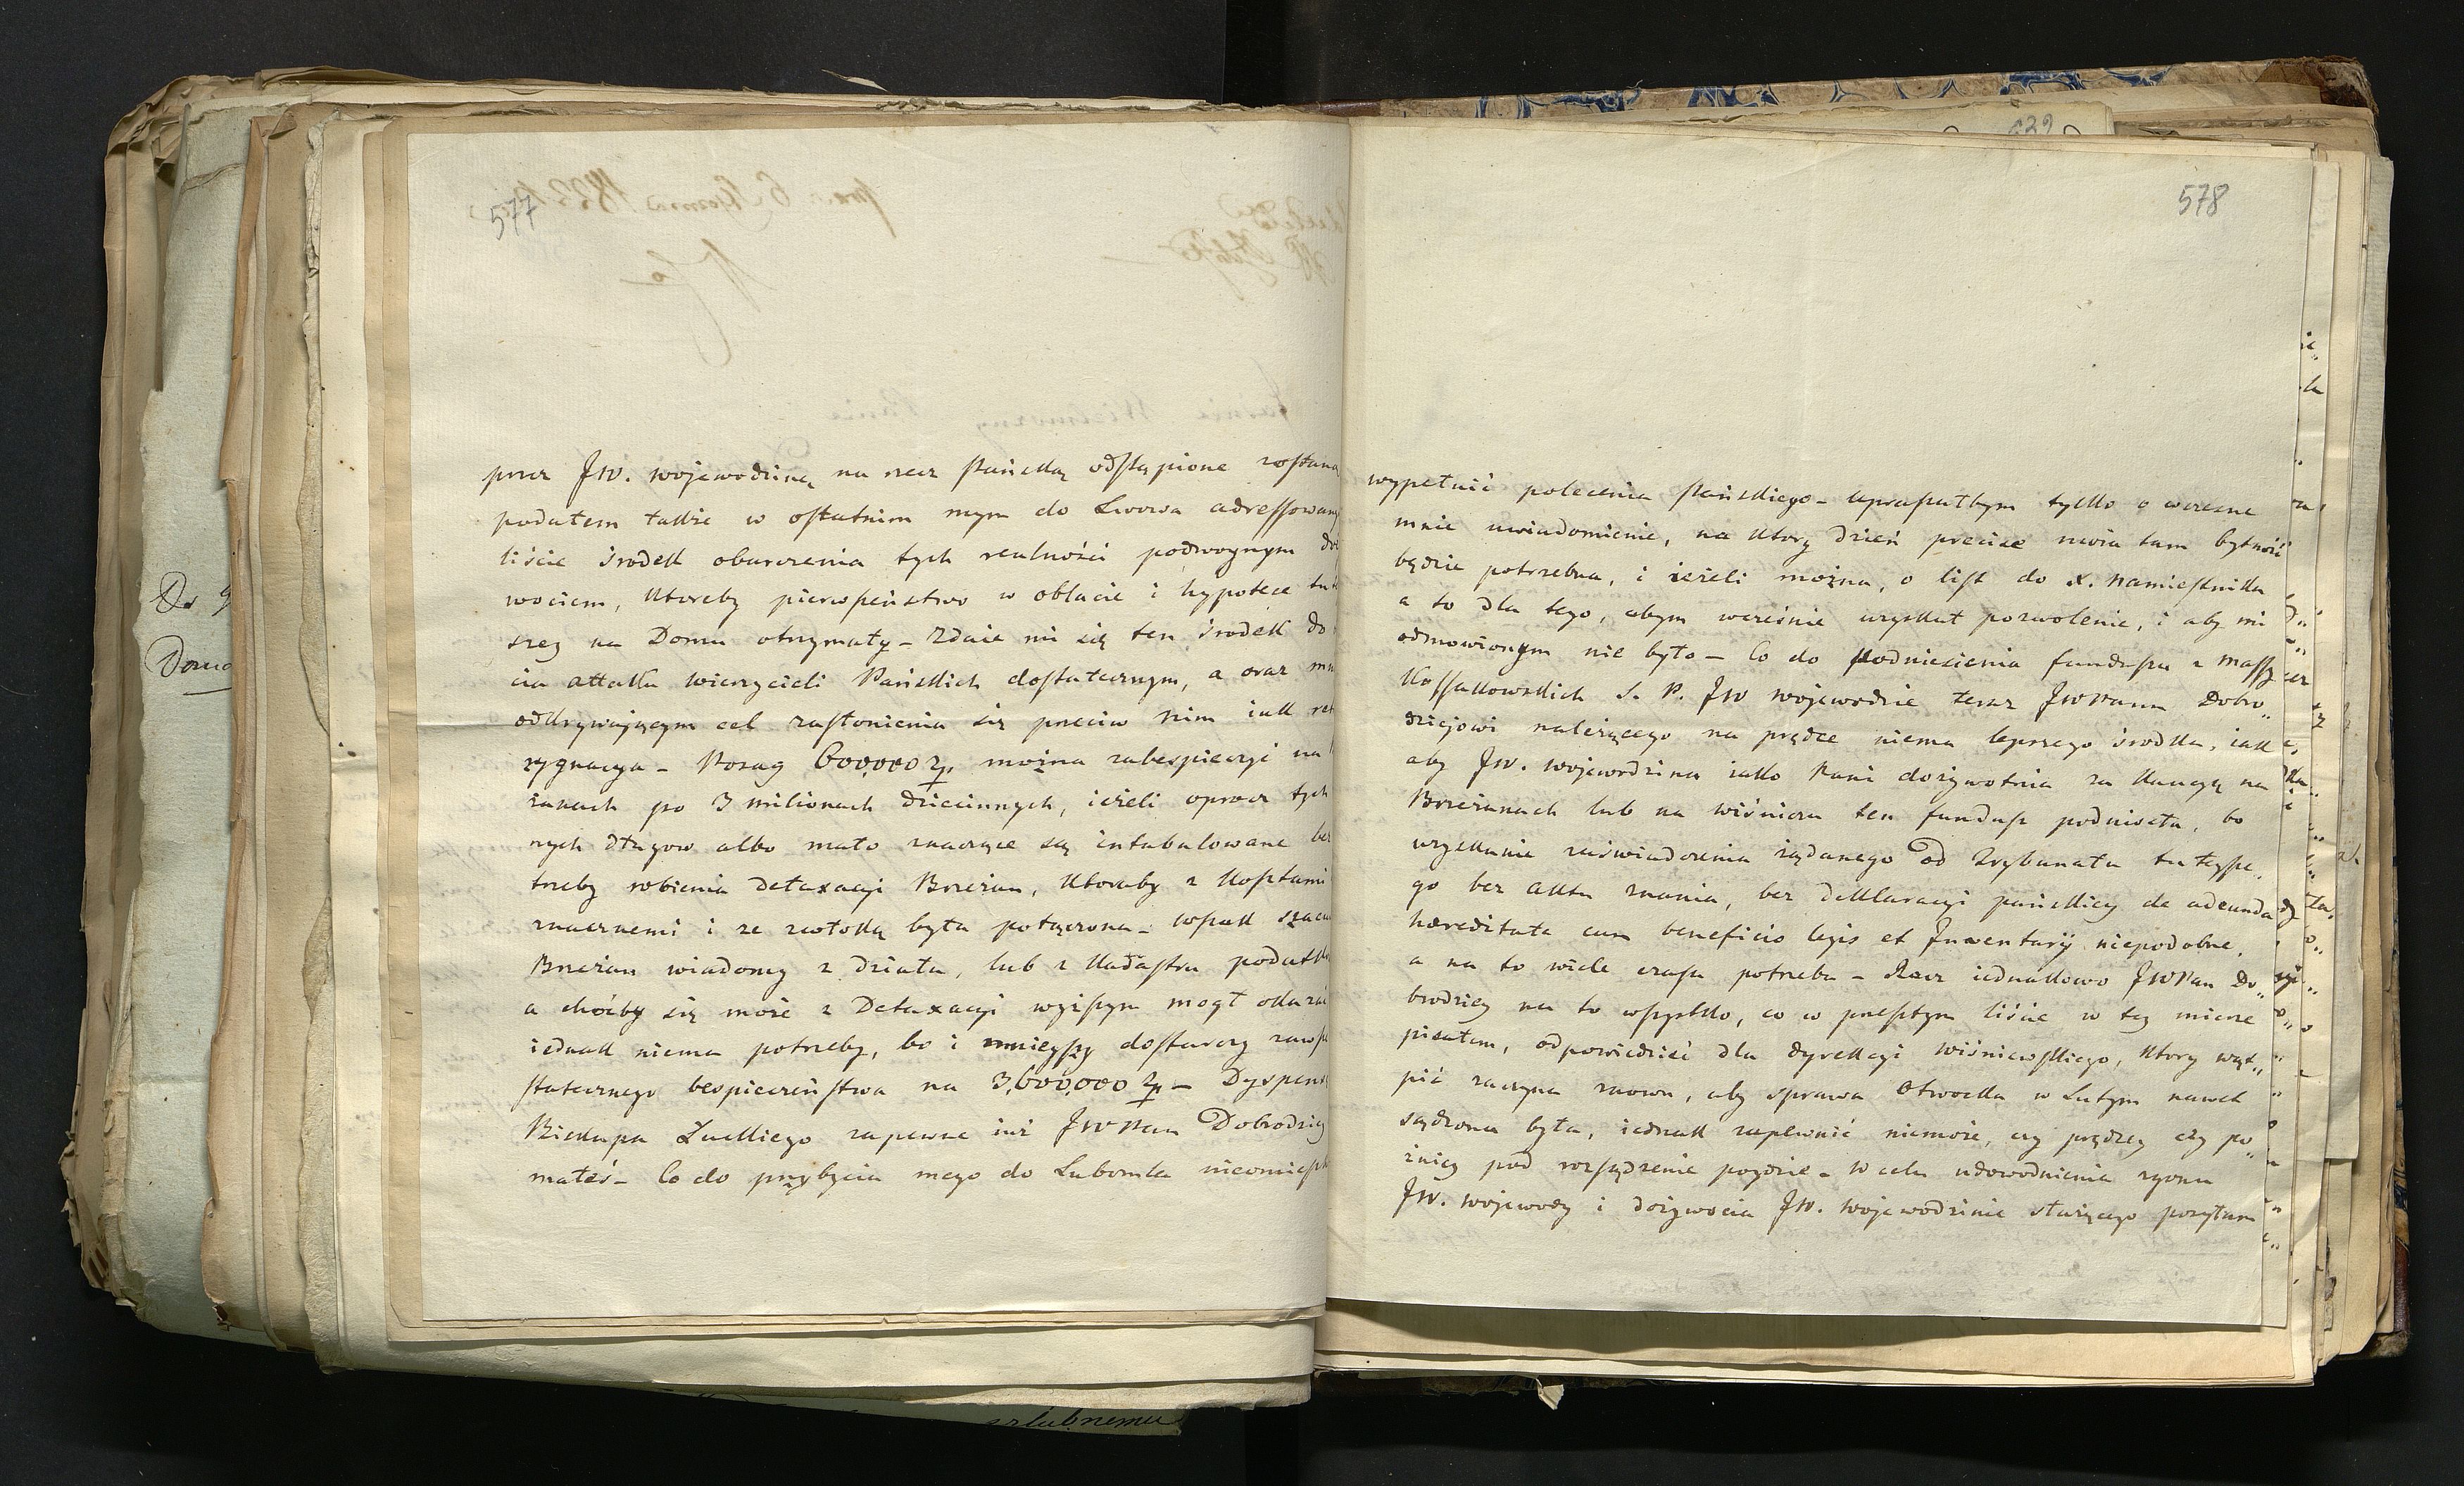 577
przez JW. wojewodzinę na rzecz Pańską odstąpione zostaną
podałem także w ostatnim mym do Lwowa adressowany
liście środek obarczenia tych realności podwoynym do
wociem, ktoreby pierwszeństwo w oblacie i hypotece tu
szey na Domu otrzymały – Zdaie mi się ten środek do
cia attaku wierzycieli Pańskich dostatecznym, a oraz mn
odkrywającym cel zasłonienia się przeciw nim iak re
zygnacya – Posag 600,000 zł. można zabespieczyć na
żanach po 3 milionach dziecinnych, ieżeli oprocz tych
nych długow albo mało znaczące są intabulowane bez
trzeby robienia Detaxacyi Brzeżan, ktoraby z kosztami
znacznemi i ze zwłoką była połączona – wszak szacu
Brzeżan wiadomy z działu, lub z kadastru podatk
a choćby się może z Detaxacyi wyższym mogł okazać
iednak niema potrzeby, bo i mnieyszy dostarczy zawsze
statecznego bespieczeństwa na 3,600,000 zł – Dyspens
Biskupa Łuckiego zapewne iuż JWPan Dobrodziey
małeś – Co do przybycia mego do Lubomla nieomiesz
578
wypełnić polecenia Pańskiego – upraszałbym tylko o wczesne
mnie uwiadomienie, na ktory dzień precise moia tam bytność
będzie potrzebna, i ieżeli można, o list do X. Namiestnika
a to dla tego, abym wcześnie uzyskał pozwolenie, i aby mi
odmowionym nie było – Co do podniesienia funduszu z massy
Kossakowskich S. P. JW Wojewodzie teraz JWPanu Dobro„
dziejowi należącego na prędce niema lepszego środka, iak
aby JW. Wojewodzina iako Pani dożywotnia za kaucyą na
Brzeżanach lub na Wiśniczu ten fundusz podniosła, bo
uzyskanie zaświadczenia żądanego od Trybunału tuteysze„
go bez Aktu znania, bez deklaracyi pańskiey de adeunda
hæreditate cum beneficio legis et Inventarÿ niepodobne,
a na to wiele czasu potrzeba – Racz iednakowo JWPan Do„
brodziey na to wszystko, co w przeszłym liście w tey mierze
pisałem, odpowiedzieć dla dyrekcyi Wiśniewskiego, ktory wąt„
pić zaczyna znowu, aby sprawa Otwocka w Lutym nawet
sądzona była, iednak zapewnić niemoże, czy prędzey czy po„
źniey pod rozsądzenie poydzie – W celu udowodnienia zgonu
JW. Wojewody i dożywocia JW. Wojewodzinie służącego pozytam